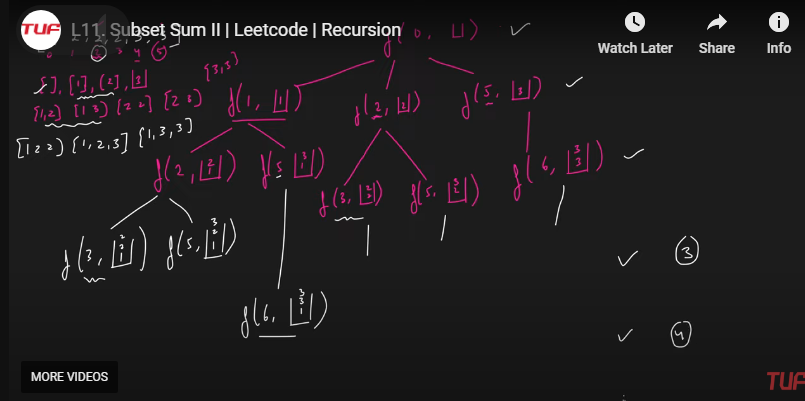 TUF L11. Subset Sum II | Leetcode | Recursion
Watch Later Share Info
f(0, ⊔)
[ ], [1], [2], [3] [3,3]
[1,2] [1 3] [2 2] [2 3]
[1 2 2] [1, 2, 3] [1, 3, 3]
f(1, 1) f(2, 2) f(5, 3)
f(2, 2 1) f(5 3 1) f(3, 2 2) f(5, 3 2) f(6, 3 3)
f(3, 2 2 1) f(5, 3 2 1)
3
f(6, 3 3 1)
4
MORE VIDEOS
TUF